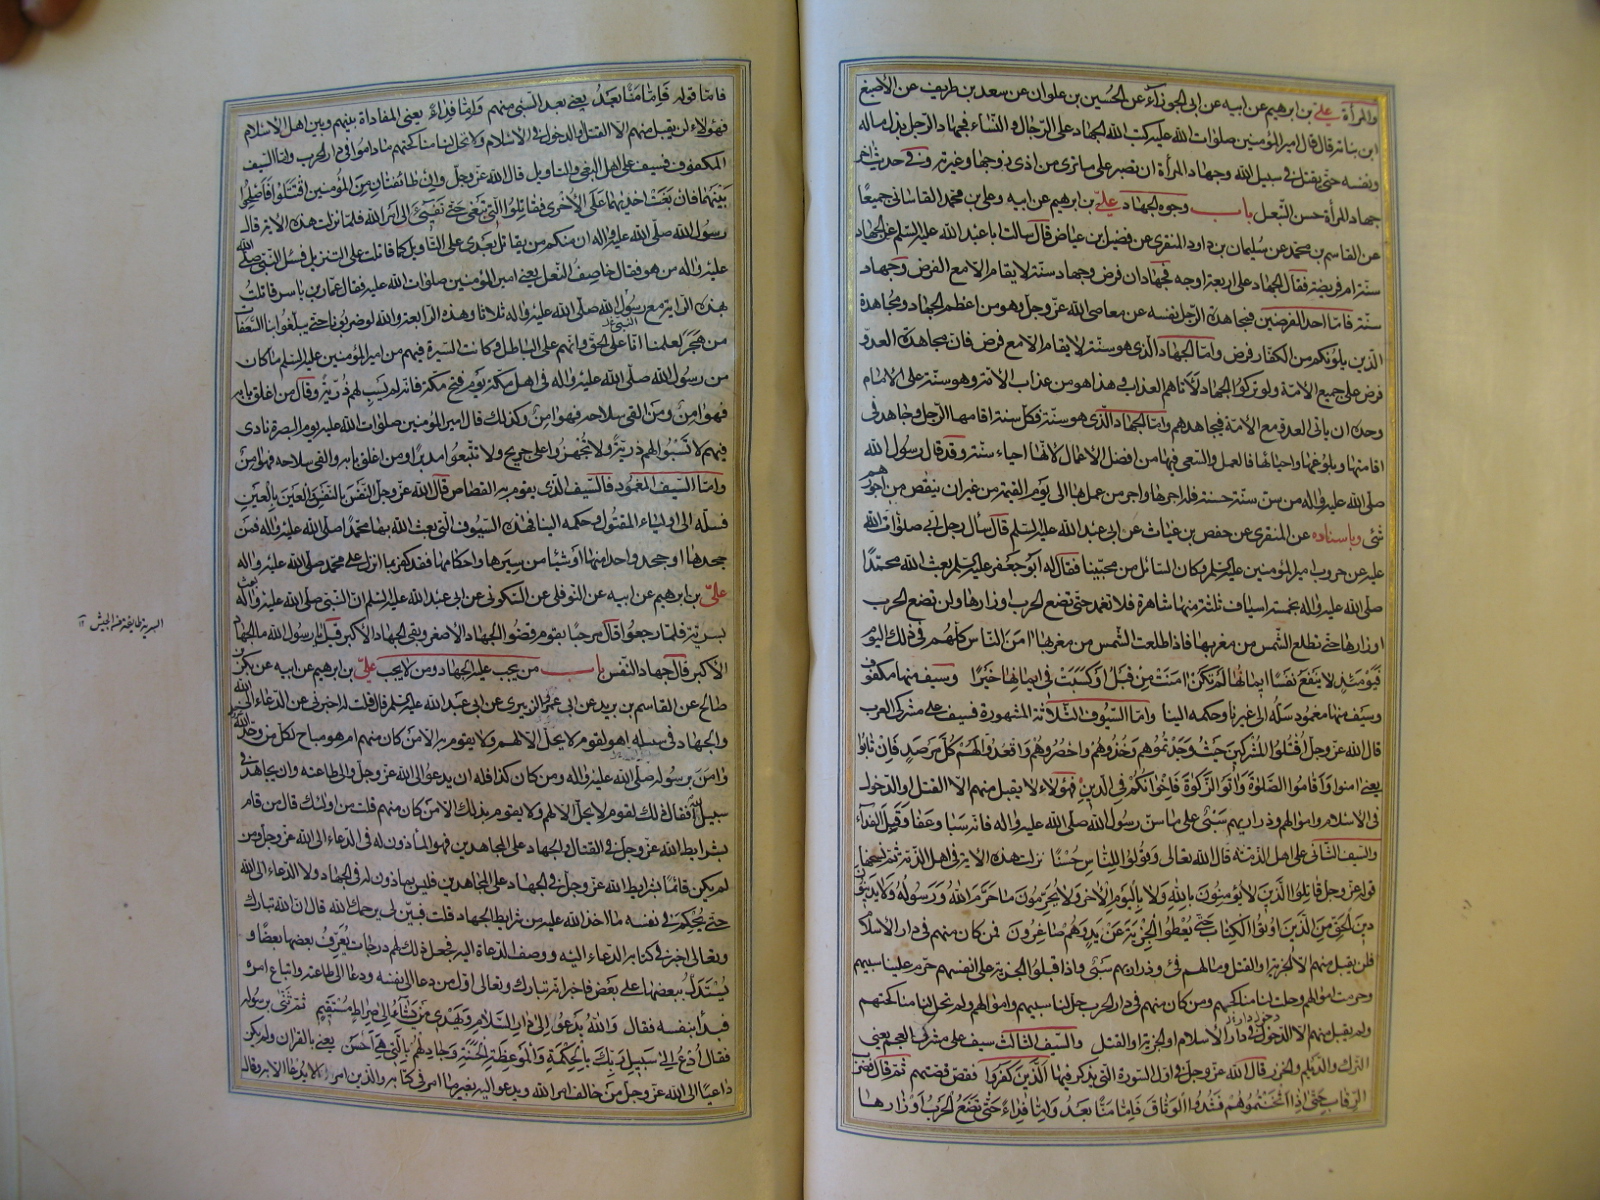 والمرأة علي بن ابرهيم عن ابيه عن ابي الجوزاء عن الحسين بن علوان عن سعد بن طريف عن الأصبغ
ابن نباتة قال قال امير المؤمنين صلوات الله عليه كتب الله الجهاد على الرجال والنساء فجهاد الرجل بذل ماله
ونفسه حتى يقتل في سبيل الله وجهاد المرأة ان تصبر على ما ترى من اذى زوجها وغيرته وفي حديث اخر
جهاد المرأة حسن التبعل باب وجوه الجهاد علي بن ابرهيم عن ابيه وعلي بن محمد القاساني جميعا
عن القاسم بن محمد عن سليمان بن داود المنقري عن فضيل بن عياض قال سالت ابا عبد الله عليه السلم عن الجهاد
سنة ام فريضة فقال الجهاد على اربعة اوجه فجهادان فرض وجهاد سنة لا يقام الا مع الفرض وجهاد
سنة فاما احد الفرضين فمجاهدة الرجل نفسه عن معاصي الله عز وجل وهو من اعظم الجهاد ومجاهدة
الذين يلونكم من الكفار فرض واما الجهاد الذي هو سنة لا يقام الا مع فرض فان مجاهدة العدو
فرض على جميع الامة ولو تركوا الجهاد لأتاهم العذاب وهذا هو من عذاب الأمة وهو سنة على الامام
وحده ان ياتي العدو مع الأمة فيجاهدهم واما الجهاد الذي هو سنة فكل سنة اقامها الرجل وجاهد في
اقامتها وبلوغها واحيائها فالعمل والسعي فيها من افضل الاعمال لأنها احياء سنة وقد قال رسول الله
صلى الله عليه واله من سن سنة حسنة فله اجرها واجر من عمل بها الى يوم القيمة من غير ان ينقص من اجورهم
شئ وباسناده عن المنقري عن حفص بن غياث عن ابي عبد الله عليه السلم قال سال رجل ابي صلوات الله
عليه عن حروب امير المؤمنين عليه السلم وكان السائل من محبينا فقال له ابو جعفر عليه السلم بعث الله محمدا
صلى الله عليه واله بخمسة اسياف ثلثة منها شاهرة فلا تغمد حتى تضع الحرب اوزارها ولن تضع الحرب
اوزارها حتى تطلع الشمس من مغربها فاذا طلعت الشمس من مغربها امن الناس كلهم في ذلك اليوم
فيومئذ لا ينفع نفسا ايمانها لم تكن امنت من قبل او كسبت في ايمانها خيرا وسيف منها مكفوف
وسيف منها مغمود سله الى غيرنا وحكمه الينا واما السيوف الثلاثة المشهورة فسيف على مشركي العرب
قال الله عز وجل اقتلوا المشركين حيث وجدتموهم وخذوهم واحصروهم واقعدوا لهم كل مرصد فان تابوا
يعني امنوا واقاموا الصلوة واتوا الزكوة فاخوانكم في الدين فهؤلاء لا يقبل منهم الا القتل او الدخول
في الاسلام واموالهم وذراريهم سبي على ما سن رسول الله صلى الله عليه واله فانه سبا وعفا وقبل الفداء
والسيف الثاني على اهل الذمة قال الله تعالى وقولوا للناس حسنا نزلت هذه الاية في اهل الذمة ثم نسخها
قوله عز وجل قاتلوا الذين لا يؤمنون بالله ولا باليوم الاخر ولا يحرمون ما حرم الله ورسوله ولا يدينون
دين الحق من الذين اوتوا الكتاب حتى يعطوا الجزية عن يد وهم صاغرون فمن كان منهم في دار الاسلام
فلن يقبل منهم الا الجزية او القتل ومالهم فئ وذراريهم سبي واذا قبلوا الجزية على انفسهم حرم علينا سبيهم
وحرمت اموالهم وحلت لنا مناكحتهم ومن كان منهم في دار الحرب حل لنا سبيهم واموالهم ولم تحل لنا مناكحتهم
ولم يقبل منهم الا الدخول في دار الاسلام او الجزية او القتل والسيف الثالث سيف على مشركي العجم يعني
الترك والديلم والخزر قال الله عز وجل في اول السورة التي يذكر فيها الذين كفروا فقص قصتهم ثم قال فضرب
الرقاب حتى اذا اثخنتموهم فشدوا الوثاق فاما منا بعد واما فداء حتى تضع الحرب اوزارها
فاما قوله فاما منا بعد يعني بعد السبي منهم واما فداء يعني المفاداة بينهم وبين اهل الاسلام
فهؤلاء لن يقبل منهم الا القتل او الدخول في الاسلام ولا تحل لنا مناكحتهم ما داموا في دار الحرب واما السيف
المكفوف فسيف على اهل البغي والتاويل قال الله عز وجل وان طائفتان من المؤمنين اقتتلوا فاصلحوا
بينهما فان بغت احديهما على الأخرى فقاتلوا التي تبغي حتى تفئ الى امر الله فلما نزلت هذه الاية قال
رسول الله صلى الله عليه واله ان منكم من يقاتل بعدي على التاويل كما قاتلت على التنزيل فسئل النبي صلى الله
عليه واله من هو فقال خاصف النعل يعني امير المؤمنين صلوات الله عليه فقال عمار بن ياسر قاتلت
بهذه الراية مع رسول الله صلى الله عليه واله ثلاثا وهذه الرابعة والله لو ضربونا حتى يبلغوا بنا السعفات
من هجر لعلمنا انا على الحق وانهم على الباطل وكانت السيرة فيهم من امير المؤمنين عليه السلم ما كان
من رسول الله صلى الله عليه واله في اهل مكة يوم فتح مكة فانه لم يسب لهم ذرية وقال من اغلق بابه
فهو امن ومن القى سلاحه فهو امن وكذلك قال امير المؤمنين صلوات الله عليه يوم البصرة نادى
فيهم لا تسبوا لهم ذرية ولا تجهزوا على جريح ولا تتبعوا مدبرا ومن اغلق بابه والقى سلاحه فهو امن
واما السيف المغمود فالسيف الذي يقوم به القصاص قال الله عز وجل النفس بالنفس والعين بالعين
فسله الى اولياء المقتول وحكمه الينا فهذه السيوف التي بعث الله بها محمدا صلى الله عليه واله فمن
جحدها او جحد واحدا منها او شيئا من سيرها واحكامها فقد كفر بما انزل على محمد صلى الله عليه واله
علي بن ابرهيم عن ابيه عن النوفلي عن السكوني عن ابي عبد الله عليه السلم ان النبي صلى الله عليه واله بعث
بسرية فلما رجعوا قال مرحبا بقوم قضوا الجهاد الاصغر وبقي الجهاد الأكبر قيل يا رسول الله ما الجهاد
الأكبر قال جهاد النفس باب من يجب عليه الجهاد ومن لا يجب علي بن ابرهيم عن ابيه عن بكر بن
صالح عن القاسم بن بريد عن ابي عمرو الزبيري عن ابي عبد الله عليه السلم قال قلت له اخبرني عن الدعاء الى الله
والجهاد في سبيله اهو لقوم لا يحل الا لهم ولا يقوم به الا من كان منهم ام هو مباح لكل من وحد الله
وامن برسوله صلى الله عليه واله ومن كان كذا فله ان يدعو الى الله عز وجل والى طاعته وان يجاهد في
سبيل الله فقال ذلك لقوم لا يحل الا لهم ولا يقوم بذلك الا من كان منهم قلت من اولئك قال من قام
بشرايط الله عز وجل في القتال والجهاد على المجاهدين فهو الماذون له في الدعاء الى الله عز وجل ومن
لم يكن قائما بشرايط الله عز وجل في الجهاد على المجاهدين فليس بماذون له في الجهاد ولا الدعاء الى الله
حتى يحكم في نفسه ما اخذ الله عليه من شرايط الجهاد قلت فبين لي يرحمك الله قال ان الله تبارك
وتعالى اخبر في كتابه الدعاء اليه ووصف الدعاة اليه فجعل ذلك لهم درجات يعرف بعضها بعضا و
يستدل ببعضها على بعض فاخبر انه تبارك وتعالى اول من دعا الى نفسه ودعا الى طاعته واتباع امره
فبدا بنفسه فقال والله يدعو الى دار السلام ويهدي من يشاء الى صراط مستقيم ثم ثنى برسوله
فقال ادع الى سبيل ربك بالحكمة والموعظة الحسنة وجادلهم بالتي هي احسن يعني بالقران ولم يكن
داعيا الى الله عز وجل من خالف امر الله ويدعو اليه بغير ما امر في كتابه والذين امر الا يدعا الا به وقال
السرية طايفة من الجيش